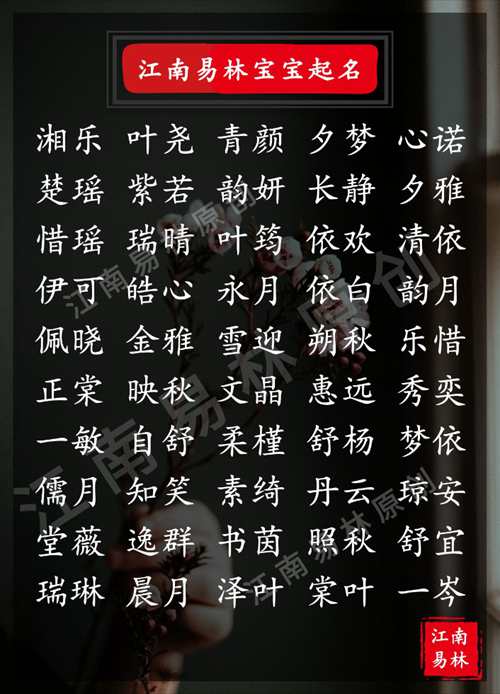 江南易林宝宝起名
湘乐 叶尧 青颜 夕梦 心诺
楚瑶 紫若 韵妍 长静 夕雅
惜瑶 瑞晴 叶筠 依欢 清依
伊可 皓心 永月 依白 韵月
佩晓 金雅 雪迎 朔秋 乐惜
正棠 映秋 文晶 惠远 秀奕
一敏 自舒 柔槿 舒杨 梦依
儒月 知笑 素绮 丹云 琼安
堂薇 逸群 书茵 照秋 舒宜
瑞琳 晨月 泽叶 棠叶 一岑
江南易林原创
江南易林原创
江南易林原创
江南
易林